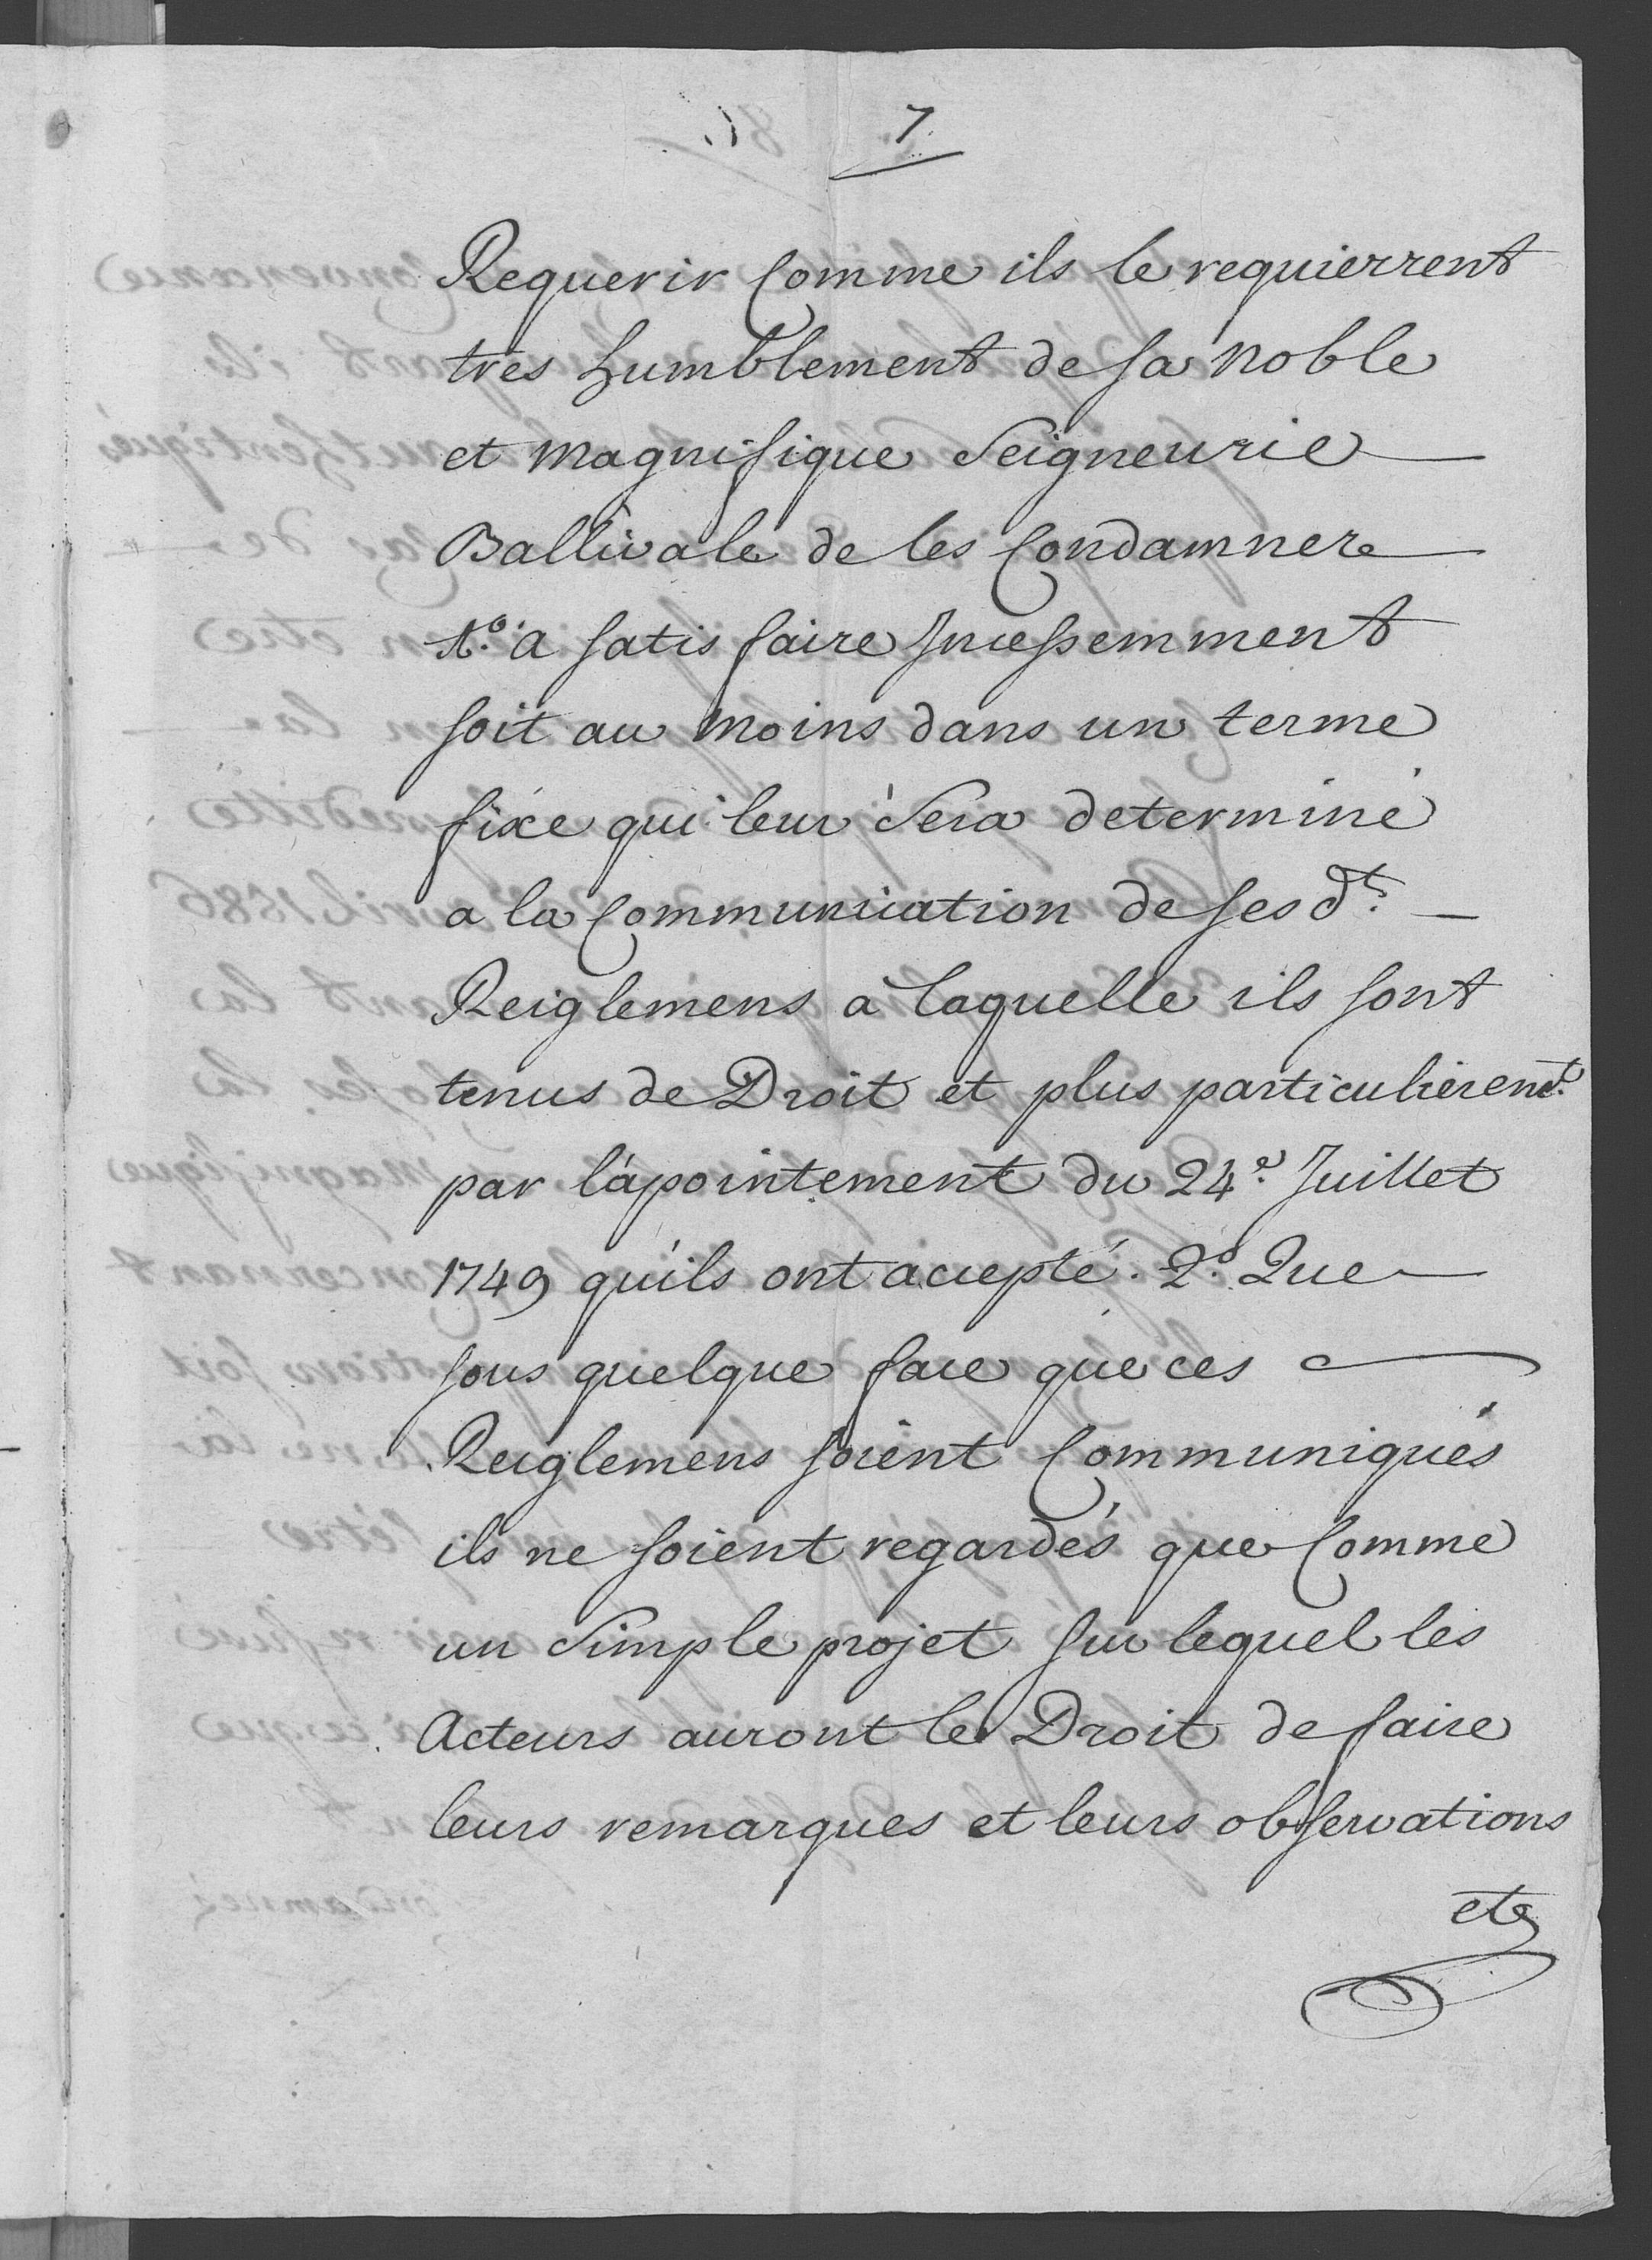 7.
Requerir Comme ils le requierrent
tres humblement de sa Noble
et Magnifique Seigneurie
Ballivale de les Condamner
1.º a satisfaire Incessemment
soit au moins dans un terme
fixe qui leur Sera determiné
a la Communication de ses d.ts
Reiglemens a laquelle ils sont
tenus de Droit et plus particulierem.t
par l'apointement du 24.e Juillet
1749 qu'ils ont accepté. 2.º Que
sous quelque face que ces
Reiglemens soient Communiqués
ils ne soient regardés que Comme
un Simple projet sur lequel les
Acteurs auront le Droit de faire
leurs remarques et leurs observations
etc